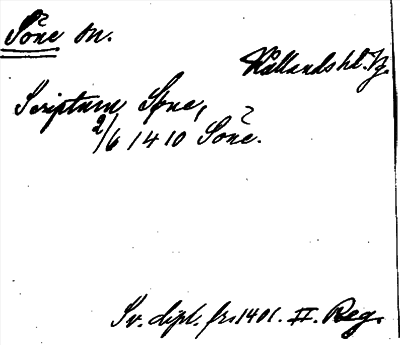 Sōne sn.
Hallands hd. Vg.
Scriptum Sone,
2/6 1410 Sone.
Sv. dipl. fr. 1401. II. Reg.